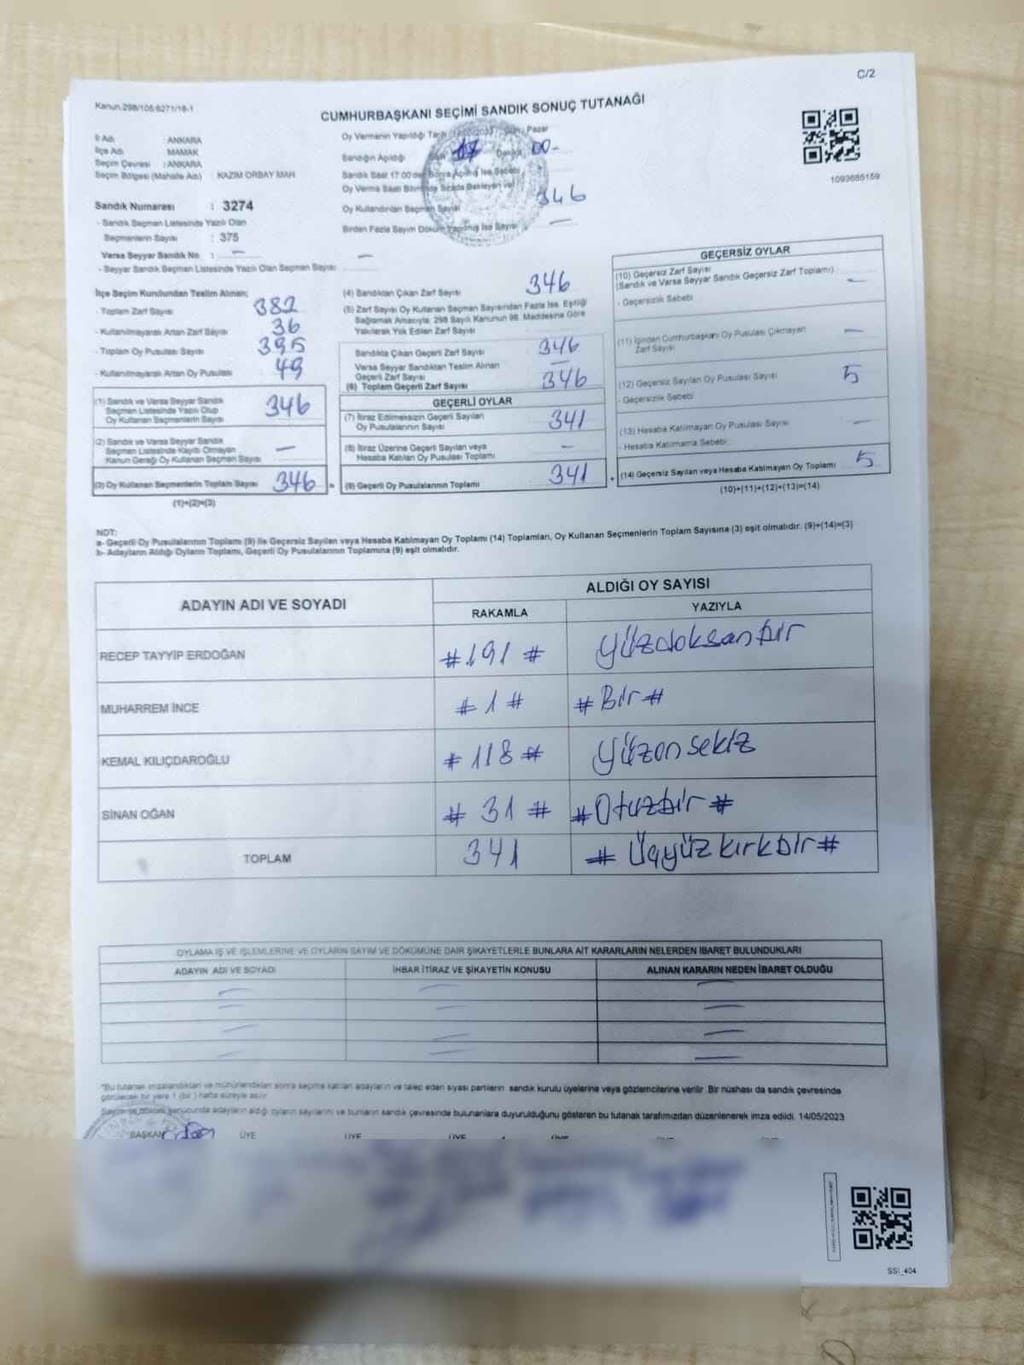 C/2
Kanun.298/105;6271/18-1
CUMHURBAŞKANI SEÇİMİ SANDIK SONUÇ TUTANAĞI
İl Adı : ANKARA
İlçe Adı : MAMAK
Seçim Çevresi : ANKARA
Seçim Bölgesi (Mahalle Adı) : KAZIM ORBAY MAH
Sandık Numarası : 3274
- Sandık Seçmen Listesinde Yazılı Olan
Seçmenlerin Sayısı : 375
Varsa Seyyar Sandık No : —
- Seyyar Sandık Seçmen Listesinde Yazılı Olan Seçmen Sayısı —
Oy Vermenin Yapıldığı Pazar
Sandığın Açıldığı 17 00-
Sandık Saat 17:00'den Sonra Açılmış İse Sebebi
Oy Verme Saati Bitiminde Sırada Bekleyen
Oy Kullandırılan Seçmen Sayısı 346
Birden Fazla Sayım Döküm Yapılmış İse Sayısı —
1093685159
İlçe Seçim Kurulundan Teslim Alınan;
- Toplam Zarf Sayısı 382
- Kullanılmayarak Artan Zarf Sayısı 36
- Toplam Oy Pusulası Sayısı 395
- Kullanılmayarak Artan Oy Pusulası 49
(1) Sandık ve Varsa Seyyar Sandık
Seçmen Listesinde Yazılı Olup
Oy Kullanan Seçmenlerin Sayısı 346
(2) Sandık ve Varsa Seyyar Sandık
Seçmen Listesinde Kaydı Olmayan
Kanun Gereği Oy Kullanan Seçmen Sayısı —
(3) Oy Kullanan Seçmenlerin Toplam Sayısı 346 =
(1)+(2)=(3)
(4) Sandıktan Çıkan Zarf Sayısı 346
(5) Zarf Sayısı Oy Kullanan Seçmen Sayısından Fazla İse, Eşitliği
Sağlamak Amacıyla; 298 Sayılı Kanunun 98. Maddesine Göre
Yakılarak Yok Edilen Zarf Sayısı
Sandıkta Çıkan Geçerli Zarf Sayısı 346
Varsa Seyyar Sandıktan Teslim Alınan
Geçerli Zarf Sayısı —
(6) Toplam Geçerli Zarf Sayısı 346
GEÇERLİ OYLAR
(7) İtiraz Edilmeksizin Geçerli Sayılan
Oy Pusulalarının Sayısı 341
(8) İtiraz Üzerine Geçerli Sayılan veya
Hesaba Katılan Oy Pusulası Toplamı —
(9) Geçerli Oy Pusulalarının Toplamı 341 +
GEÇERSİZ OYLAR
(10) Geçersiz Zarf Sayısı
(Sandık ve Varsa Seyyar Sandık Geçersiz Zarf Toplamı) —
- Geçersizlik Sebebi
(11) İçinden Cumhurbaşkanı Oy Pusulası Çıkmayan
Zarf Sayısı —
(12) Geçersiz Sayılan Oy Pusulası Sayısı 5
- Geçersizlik Sebebi
(13) Hesaba Katılmayan Oy Pusulası Sayısı —
- Hesaba Katılmama Sebebi
(14) Geçersiz Sayılan veya Hesaba Katılmayan Oy Toplamı 5
(10)+(11)+(12)+(13)=(14)
NOT:
a- Geçerli Oy Pusulalarının Toplamı (9) ile Geçersiz Sayılan veya Hesaba Katılmayan Oy Toplamı (14) Toplamları, Oy Kullanan Seçmenlerin Toplam Sayısına (3) eşit olmalıdır. (9)+(14)=(3)
b- Adayların Aldığı Oyların Toplamı, Geçerli Oy Pusulalarının Toplamına (9) eşit olmalıdır.
ADAYIN ADI VE SOYADI
ALDIĞI OY SAYISI
RAKAMLA YAZIYLA
RECEP TAYYİP ERDOĞAN #191# yüzdoksanbir
MUHARREM İNCE #1# #Bir#
KEMAL KILIÇDAROĞLU #118# yüzonsekiz
SİNAN OĞAN #31# #Otuzbir#
TOPLAM 341 #Üçyüzkırkbir#
OYLAMA İŞ VE İŞLEMLERİNE VE OYLARIN SAYIM VE DÖKÜMÜNE DAİR ŞİKAYETLERLE BUNLARA AİT KARARLARIN NELERDEN İBARET BULUNDUKLARI
ADAYIN ADI VE SOYADI İHBAR İTİRAZ VE ŞİKAYETİN KONUSU ALINAN KARARIN NEDEN İBARET OLDUĞU
— — —
— — —
— — —
— — —
"Bu tutanak imzalandıktan ve mühürlendikten sonra seçime katılan adayların ve talep eden siyasi partilerin sandık kurulu üyelerine veya gözlemcilerine verilir. Bir nüshası da sandık çevresinde
görülecek bir yere 1 (bir) hafta süreyle asılır.
Sayım ve döküm sonucunda adayların aldığı oyların sayılarını ve bunların sandık çevresinde bulunanlara duyurulduğunu gösteren bu tutanak tarafımızdan düzenlenerek imza edildi. 14/05/2023
BAŞKAN ÜYE ÜYE ÜYE ÜYE
SSI_404